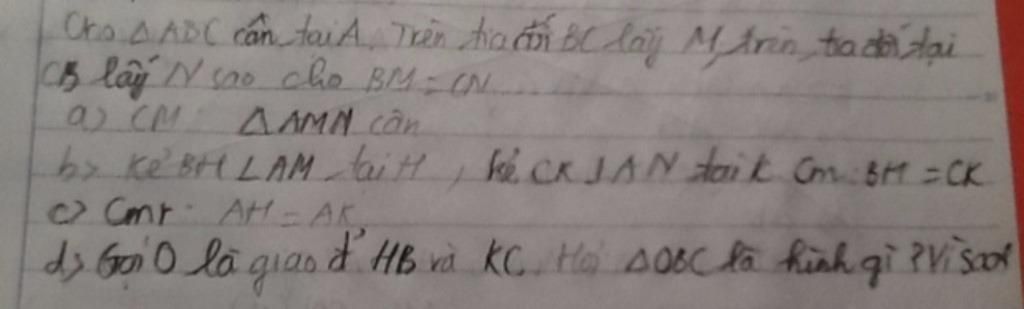 Cho △ABC cân tại A. Trên tia đối BC lấy M, trên tia đối tại
CB lấy N sao cho BM = CN
a) CM △AMN cân
b) Kẻ BH ⊥ AM tại H, kẻ CK ⊥ AN tại K Cm: BH = CK
c) Cmr: AH = AK
d) Gọi O là giao đ' HB và KC. Hỏi △OBC là hình gì? Vì sao?